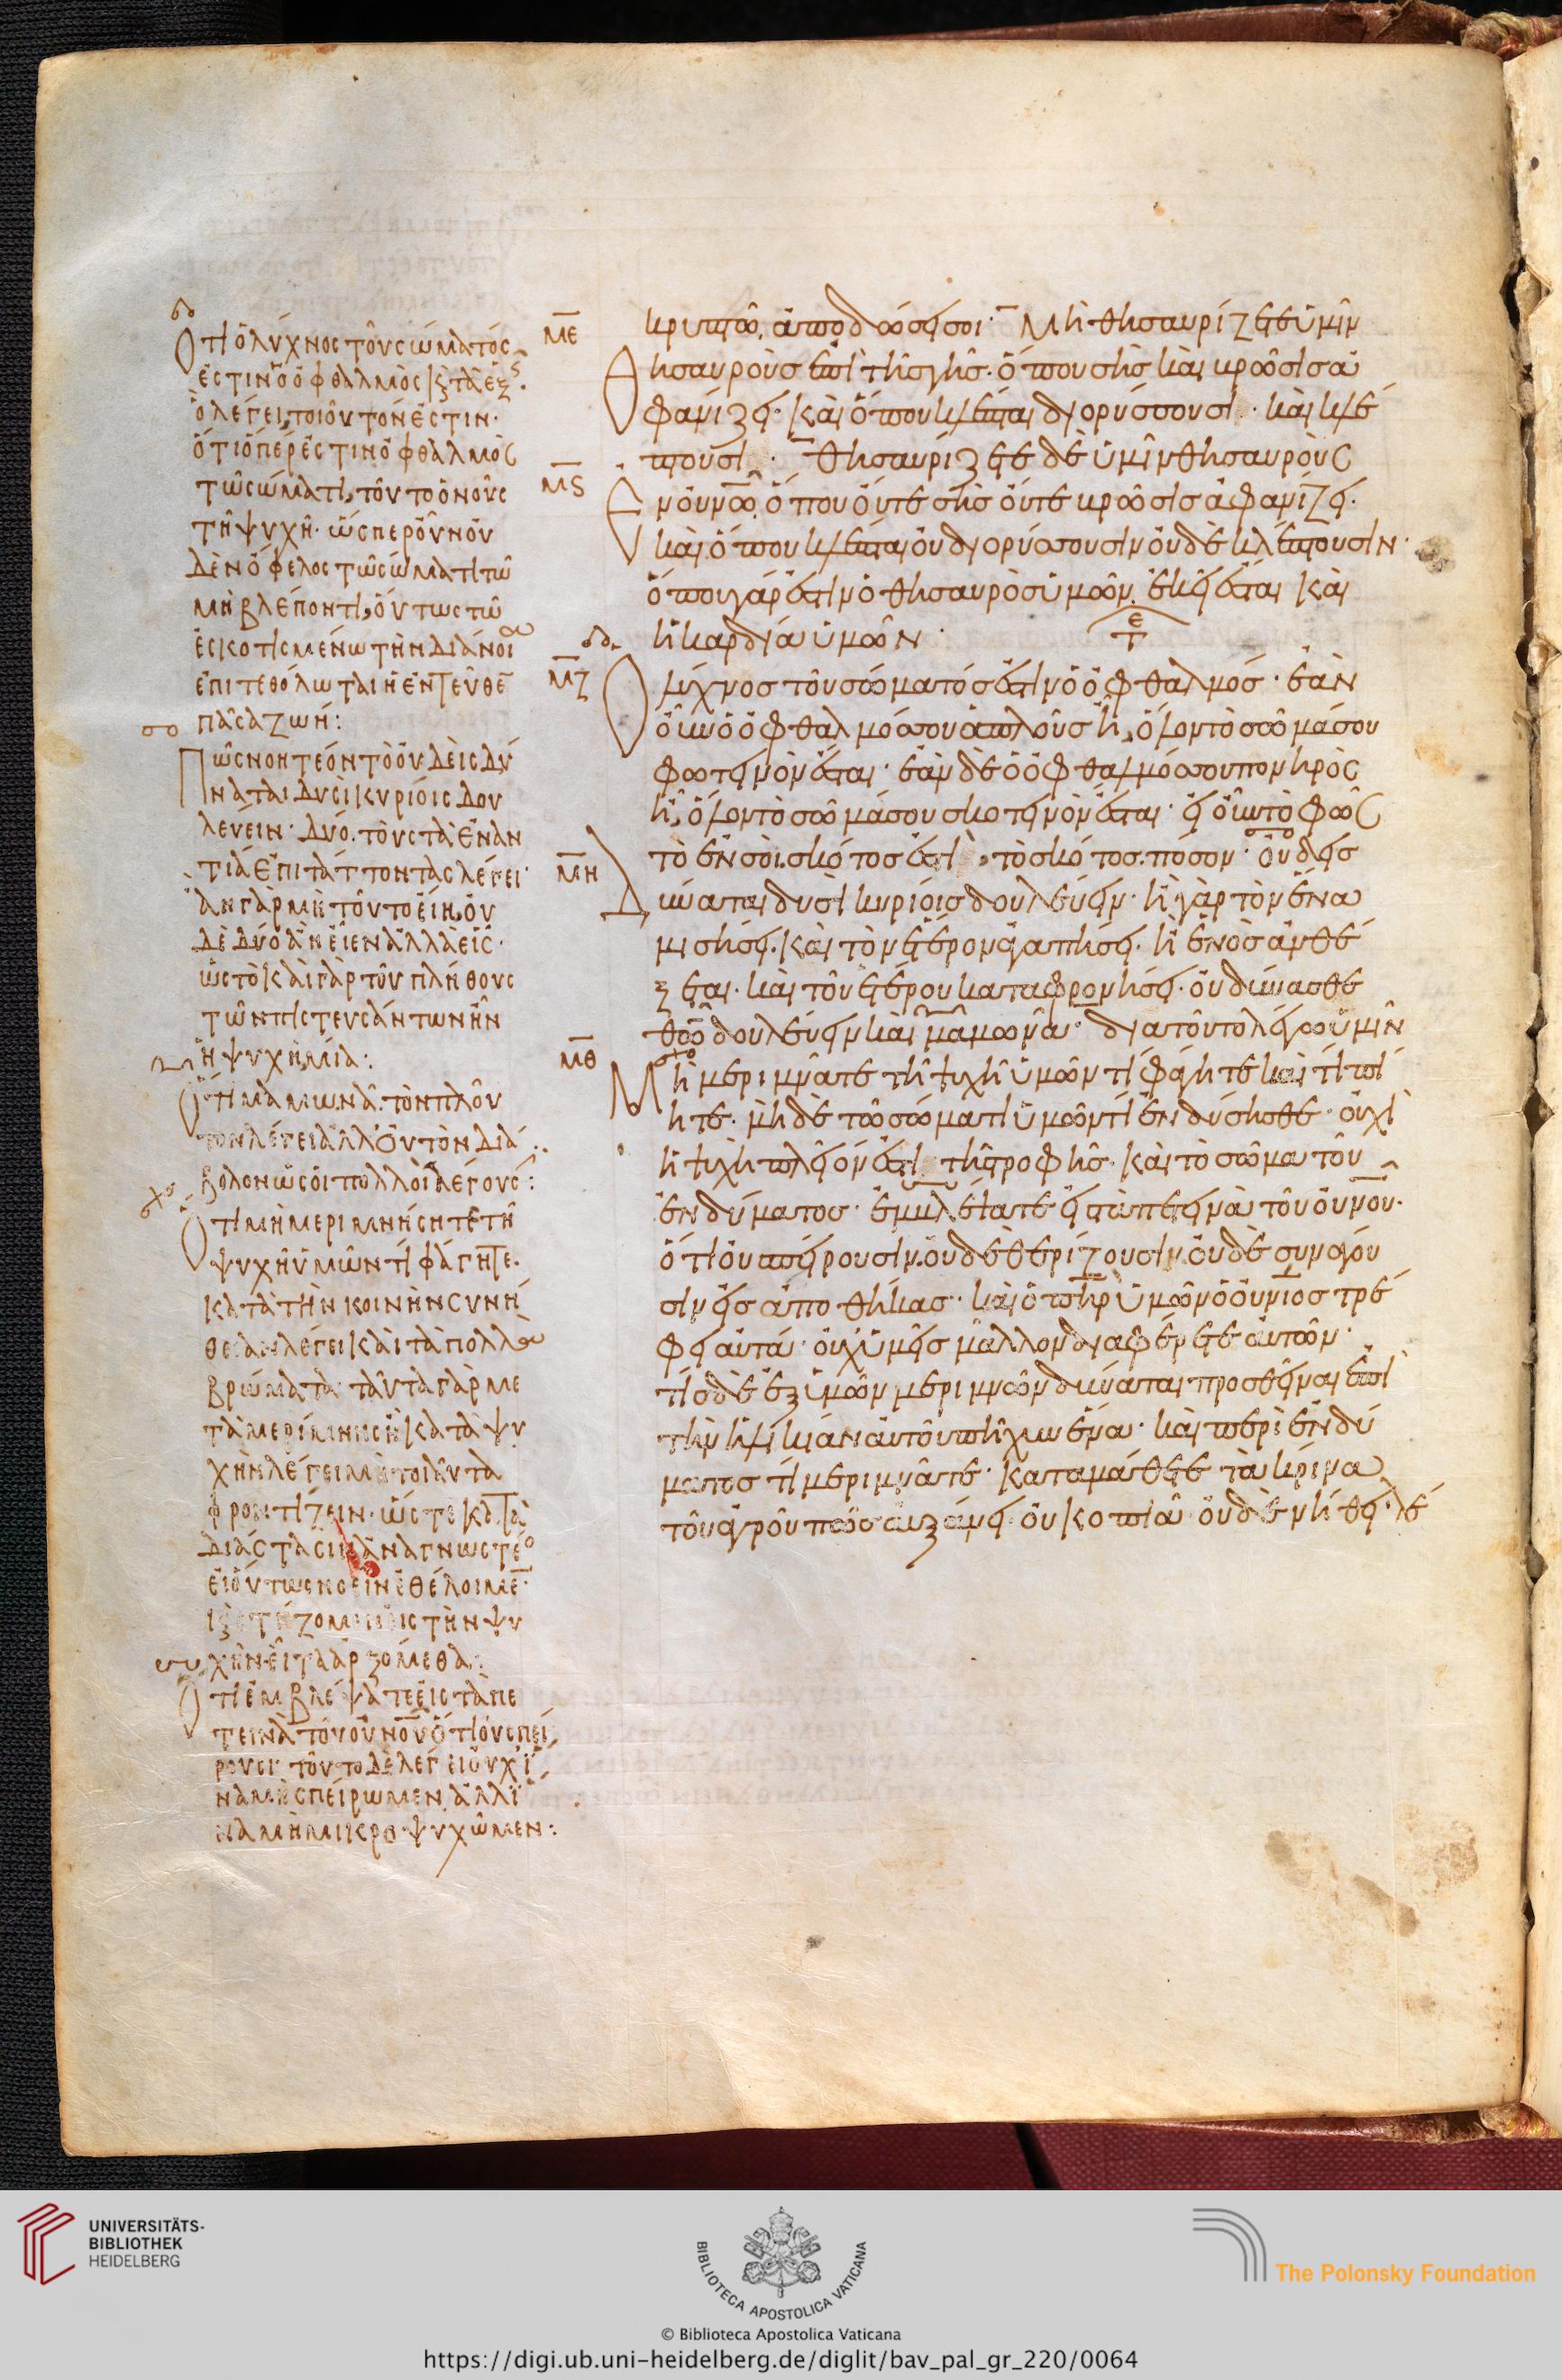 Ὅτι ὁ λύχνος τοῦ σώματός
ἐστιν ὁ ὀφθαλμὸς κ τὰ ἑξ
ὃ λέγει ποιοῦτόν ἐστιν·
ὅτι ὅπερ ἐστιν ὀφθαλμὸς
τῶ σώματι, τοῦτο ὁ νοῦς
τῆ ψυχῆ· ὥσπερ οὖν οὐ
δὲν ὄφελος τῶ σώματι τῶ
μὴ βλέποντι, οὕτως τῶ
ἐσκοτισμένω τὴν διάνοι
ἐπιτεθόλωται ἡ ἐντεῦθε
πᾶσα ζωή:
Πῶς νοητέον τὸ οὐδεὶς δύ
ναται δυσὶ κυρίοις δου
λεύειν· δύο τοὺς τὰ ἐναν
τία ἐπιτάττοντας λέγει·
ἂν γὰρ μὴ τοῦτο εἴη, οὐ
δὲ δύο ἂν εἶεν ἀλλὰ εἷς·
ὡς τὸ καὶ γὰρ τοῦ πλήθους
τῶν πιστευσάντων ἦν
ἡ ψυχὴ μία:
Ὅτι μαμωνᾶ τὸν πλοῦ
τον λέγει ἀλλ' οὐ τὸν διά
βολον ὡς οἱ πολλοὶ λέγουσ:
Ὅτι μὴ μεριμνήσητε τῆ
ψυχῆ ὑμῶν τί φάγητε·
κατὰ τὴν κοινὴν συνή
θειαν λέγει καὶ τὰ πολλὰ
βρώματα ταῦτα γὰρ με
τὰ μερίμνης ἢ κατὰ ψυ
χὴν λέγει μὴ τοιαῦτα
φροντίζειν· ὥστε κατὰ
διάστασιν ἀναγνωστέο
εἰ οὕτως νοεῖν ἐθέλοιμε
εἰς τὴν ψυ
χὴν εἶτα ἀρξόμεθα:
Ὅτι ἐμβλέψατε εἰς τὰ πε
τεινὰ τοῦ οὐνοῦ ὅτι οὐ σπεί
ρουσι τοῦτο δὲ λέγει οὐχ ἵ
να μὴ σπείρωμεν, ἀλλ' ἵ
να μὴ μικροψυχῶμεν:
ΜΕ κρυπτῶ, ἀποδώσει σοι· Μὴ θησαυρίζετε ὑμῖν
θησαυροὺς ἐπὶ τῆς γῆς· ὅπου σὴς καὶ βρῶσις ἀ
φανίζει· καὶ ὅπου κλέπται διορύσσουσι· καὶ κλέ
πτουσι· θησαυρίζετε δὲ ὑμῖν θησαυροὺς
ΜϚ Ἐν οὐνῶ, ὅπου οὔτε σὴς οὔτε βρῶσις ἀφανίζει·
καὶ ὅπου κλέπται οὐ διορύσσουσιν οὐδὲ κλέπτουσιν·
ὅπου γάρ ἐστιν ὁ θησαυρὸς ὑμῶν, ἐκεῖ ἔσται καὶ
ἡ καρδία ὑμῶν·
ΜΖ Ὁ λύχνος τοῦ σώματός ἐστιν ὁ ὀφθαλμός· ἐὰν
οὖν ὁ ὀφθαλμός σου ἁπλοῦς ἦ, ὅλον τὸ σῶμά σου
φωτεινὸν ἔσται· ἐὰν δὲ ὁ ὀφθαλμός σου πονηρὸς
ἦ, ὅλον τὸ σῶμά σου σκοτεινὸν ἔσται· εἰ οὖν τὸ φῶς
ΜΗ τὸ ἐν σοὶ σκότος ἐστὶ, τὸ σκότος πόσον· οὐδεὶς
Δύναται δυσὶ κυρίοις δουλεύειν· ἢ γὰρ τὸν ἕνα
μισήσει· καὶ τὸν ἕτερον ἀγαπήσει· ἢ ἑνὸς ἀνθέ
ξεται· καὶ τοῦ ἑτέρου καταφρονήσει· οὐ δύνασθε
θῶ δουλεύειν καὶ μαμωνᾶ· διατοῦτο λέγω ὑμῖν
ΜΘ Μὴ μεριμνᾶτε τῆ ψυχῆ ὑμῶν τί φάγητε καὶ τί πί
ητε· μὴ δὲ τῶ σώματι ὑμῶν τί ἐνδύσησθε· οὐχὶ
ἡ ψυχὴ πλεῖόν ἐστι τῆς τροφῆς· καὶ τὸ σῶμα τοῦ
ἐνδύματος· ἐμβλέψατε εἰς τὰ πετεινὰ τοῦ οὐνου·
ὅτι οὐ σπείρουσιν οὐδὲ θερίζουσιν οὐδὲ συνάγου
σιν εἰς ἀποθήκας· καὶ ὁ πὴρ ὑμῶν ὁ οὐνιος τρέ
φει αὐτά· οὐχ ὑμεῖς μᾶλλον διαφέρετε αὐτῶν·
τίς δὲ ἐξ ὑμῶν μεριμνῶν δύναται προσθεῖναι ἐπὶ
τὴν ἡλικίαν αὐτοῦ πῆχυν ἕνα· καὶ περὶ ἐνδύ
ματος τί μεριμνᾶτε· καταμάθετε τὰ κρίνα
τοῦ ἀγροῦ πῶς αὐξάνει· οὐ κοπιᾶ οὐδὲ νήθει· λέ
UNIVERSITÄTS-
BIBLIOTHEK
HEIDELBERG
BIBLIOTECA APOSTOLICA VATICANA
The Polonsky Foundation
© Biblioteca Apostolica Vaticana
https://digi.ub.uni-heidelberg.de/diglit/bav_pal_gr_220/0064